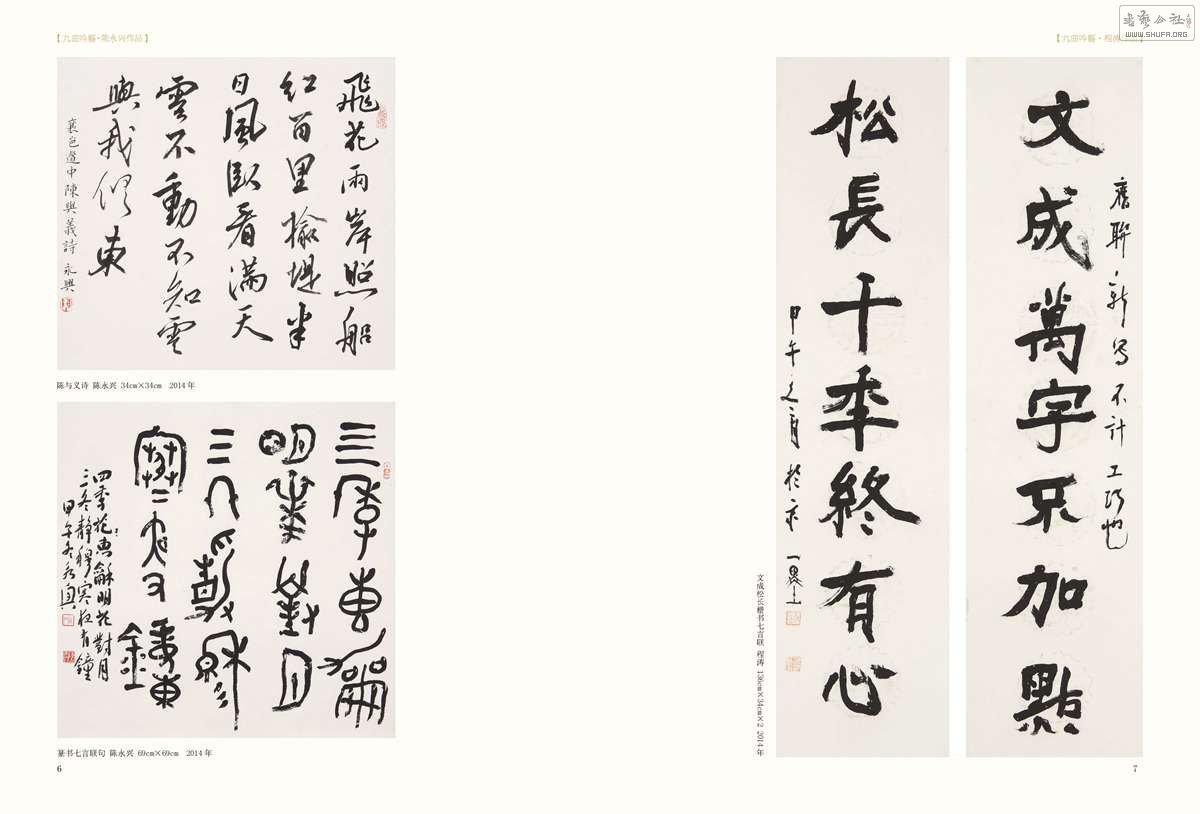 書藝公社
www.SHUFA.ORG
【九曲吟觴·陈永兴作品】
飛花兩岸照船
紅百里榆堤半
日風卧看滿天
雲不動不知雲
與我俱東
襄邑道中陳與義詩 永興
陈与义诗 陈永兴 34cm×34cm 2014年
四季花惠龢明花對月
三冬静穆寒夜有鐘
甲午冬永興
篆书七言联句 陈永兴 69cm×69cm 2014年
6
【九曲吟觴·程涛
文成萬字不加點
舊聯新写不计工巧也
松長千秊終有心
甲午之夏於京
文成松长楷书七言联 程涛 136cm×34cm×2 2014年
7